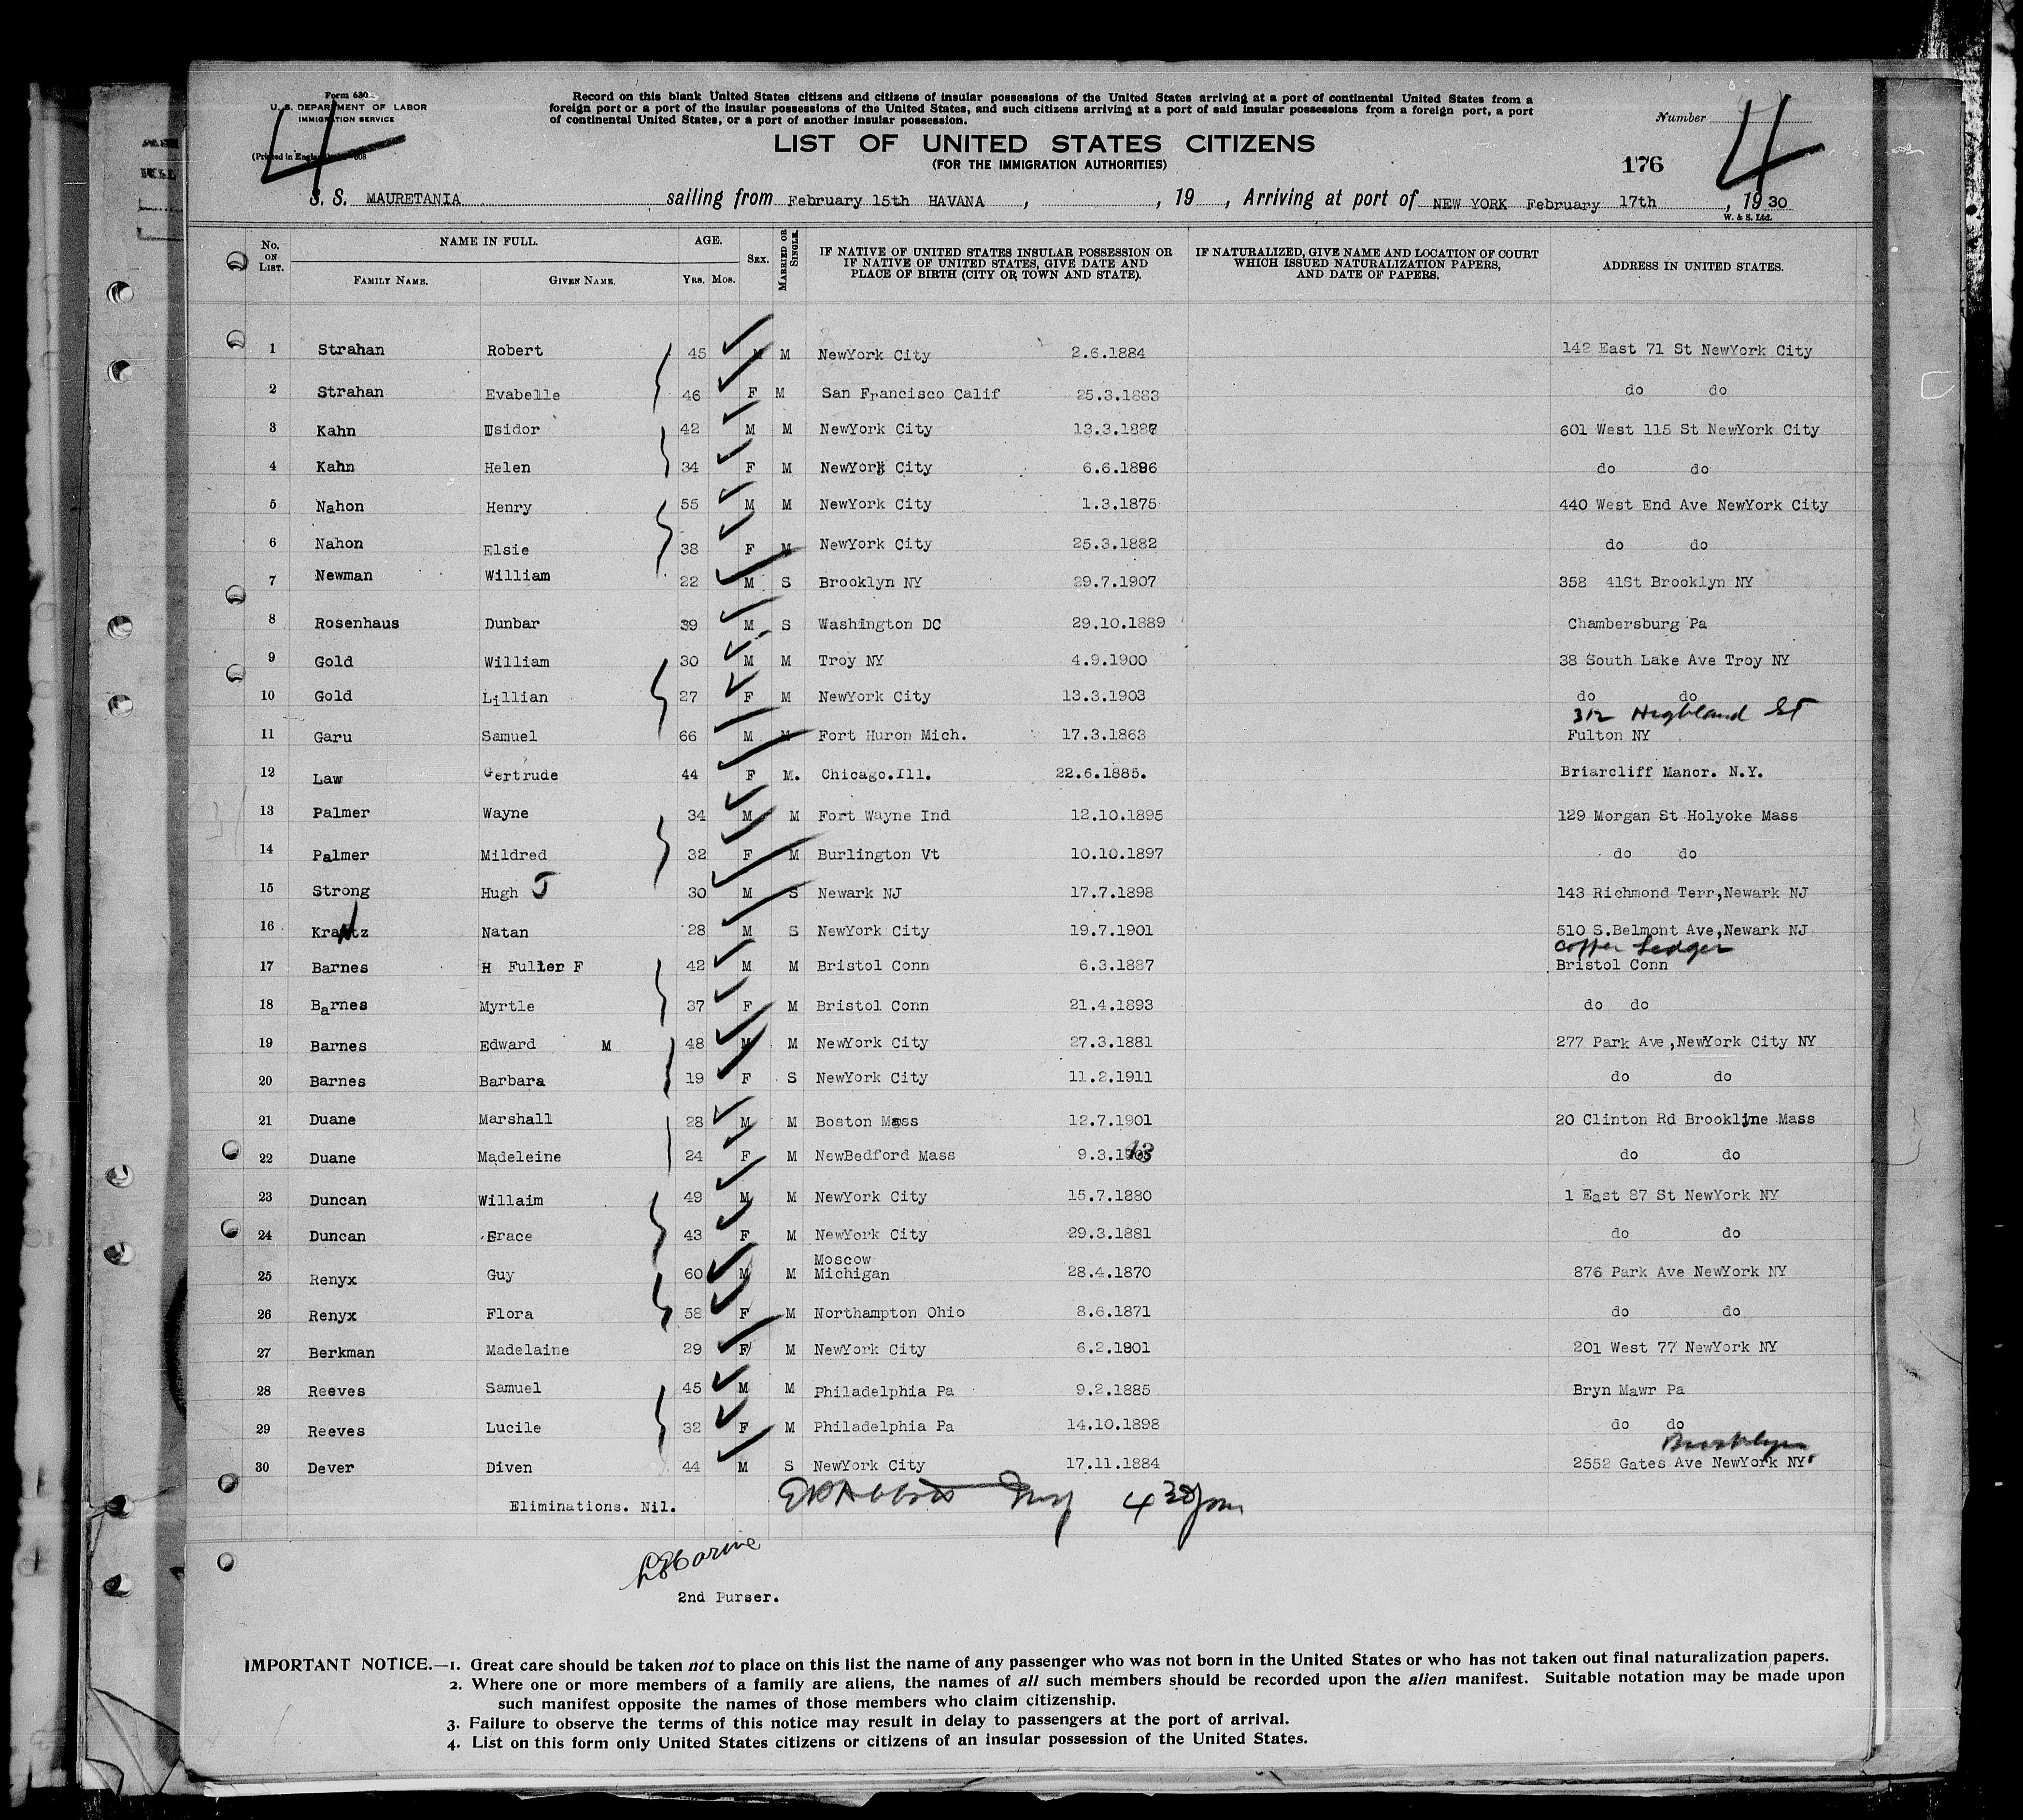 Form 630
U. S. DEPARTMENT OF LABOR
IMMIGRATION SERVICE
(Printed in England)
4
Record on this blank United States citizens and citizens of insular possessions of the United States arriving at a port of continental United States from a
foreign port or a port of the insular possessions of the United States, and such citizens arriving at a port of said insular possessions from a foreign port, a port
of continental United States, or a port of another insular possession.
Number
4
LIST OF UNITED STATES CITIZENS
(FOR THE IMMIGRATION AUTHORITIES)
176
S. S. MAURETANIA sailing from February 15th HAVANA , , 19 , Arriving at port of NEW YORK February 17th , 19 30
W. & S. Ltd.
No. ON LIST. NAME IN FULL. AGE. SEX. MARRIED OR SINGLE. IF NATIVE OF UNITED STATES INSULAR POSSESSION OR IF NATIVE OF UNITED STATES, GIVE DATE AND PLACE OF BIRTH (CITY OR TOWN AND STATE). IF NATURALIZED, GIVE NAME AND LOCATION OF COURT WHICH ISSUED NATURALIZATION PAPERS, AND DATE OF PAPERS. ADDRESS IN UNITED STATES.
FAMILY NAME. GIVEN NAME. YRS. MOS.
1 Strahan Robert 45 M M NewYork City 2.6.1884 142 East 71 St NewYork City
2 Strahan Evabelle 46 F M San Francisco Calif 25.3.1883 do do
3 Kahn Isidor 42 M M NewYork City 13.3.1887 601 West 115 St NewYork City
4 Kahn Helen 34 F M NewYork City 6.6.1896 do do
5 Nahon Henry 55 M M NewYork City 1.3.1875 440 West End Ave NewYork City
6 Nahon Elsie 38 F M NewYork City 25.3.1882 do do
7 Newman William 22 M S Brooklyn NY 29.7.1907 358 41St Brooklyn NY
8 Rosenhaus Dunbar 39 M S Washington DC 29.10.1889 Chambersburg Pa
9 Gold William 30 M M Troy NY 4.9.1900 38 South Lake Ave Troy NY
10 Gold Lillian 27 F M NewYork City 13.3.1903 do do
312 Highland St
11 Garu Samuel 66 M M Fort Huron Mich. 17.3.1863 Fulton NY
12 Law Gertrude 44 F M. Chicago.Ill. 22.6.1885. Briarcliff Manor. N.Y.
13 Palmer Wayne 34 M M Fort Wayne Ind 12.10.1895 129 Morgan St Holyoke Mass
14 Palmer Mildred 32 F M Burlington Vt 10.10.1897 do do
15 Strong Hugh J 30 M S Newark NJ 17.7.1898 143 Richmond Terr,Newark NJ
16 Krantz Natan 28 M S NewYork City 19.7.1901 510 S.Belmont Ave,Newark NJ
Copper Ledger
17 Barnes H Fuller F 42 M M Bristol Conn 6.3.1887 Bristol Conn
18 Barnes Myrtle 37 F M Bristol Conn 21.4.1893 do do
19 Barnes Edward M 48 M M NewYork City 27.3.1881 277 Park Ave,NewYork City NY
20 Barnes Barbara 19 F S NewYork City 11.2.1911 do do
21 Duane Marshall 28 M M Boston Mass 12.7.1901 20 Clinton Rd Brookline Mass
22 Duane Madeleine 24 F M NewBedford Mass 9.3.1903 do do
23 Duncan Willaim 49 M M NewYork City 15.7.1880 1 East 87 St NewYork NY
24 Duncan Grace 43 F M NewYork City 29.3.1881 do do
Moscow
25 Renyx Guy 60 M M Michigan 28.4.1870 876 Park Ave NewYork NY
26 Renyx Flora 58 F M Northampton Ohio 8.6.1871 do do
27 Berkman Madelaine 29 F M NewYork City 6.2.1901 201 West 77 NewYork NY
28 Reeves Samuel 45 M M Philadelphia Pa 9.2.1885 Bryn Mawr Pa
29 Reeves Lucile 32 F M Philadelphia Pa 14.10.1898 do do
Brooklyn
30 Dever Diven 44 M S NewYork City 17.11.1884 2552 Gates Ave NewYork NY
Eliminations. Nil. 4 30 pm
2nd Purser.
IMPORTANT NOTICE.—1. Great care should be taken not to place on this list the name of any passenger who was not born in the United States or who has not taken out final naturalization papers.
2. Where one or more members of a family are aliens, the names of all such members should be recorded upon the alien manifest. Suitable notation may be made upon
such manifest opposite the names of those members who claim citizenship.
3. Failure to observe the terms of this notice may result in delay to passengers at the port of arrival.
4. List on this form only United States citizens or citizens of an insular possession of the United States.